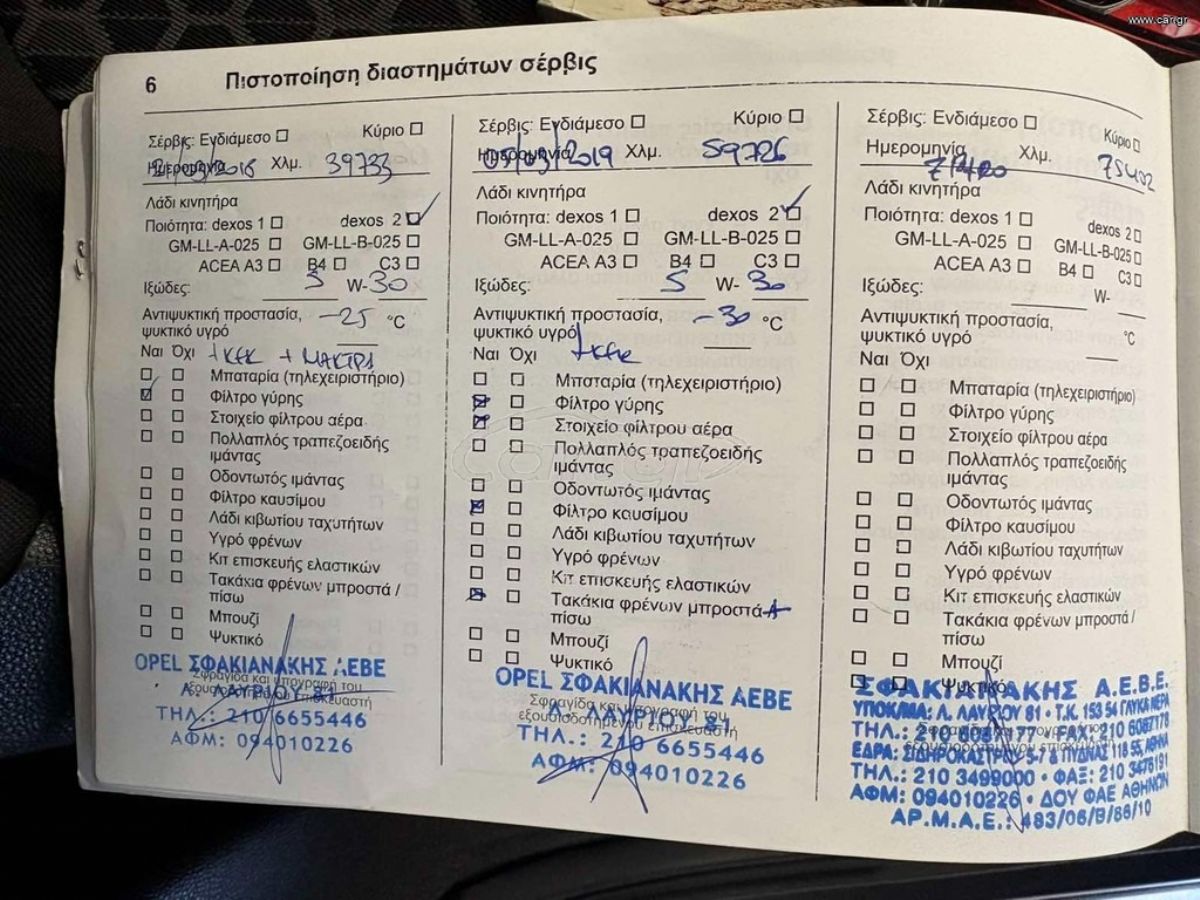 www.car.gr
6 Πιστοποίηση διαστημάτων σέρβις
Σέρβις: Ενδιάμεσο Κύριο
Ημερομηνία /03/2018 Χλμ. 39733
Λάδι κινητήρα
Ποιότητα: dexos 1 dexos 2
GM-LL-A-025 GM-LL-B-025
ACEA A3 B4 C3
Ιξώδες: 5 W- 30
Αντιψυκτική προστασία,
ψυκτικό υγρό -25 °C
Ναι Όχι + ΜΑΚΤΡΑ
Μπαταρία (τηλεχειριστήριο)
Φίλτρο γύρης
Στοιχείο φίλτρου αέρα
Πολλαπλός τραπεζοειδής
ιμάντας
Οδοντωτός ιμάντας
Φίλτρο καυσίμου
Λάδι κιβωτίου ταχυτήτων
Υγρό φρένων
Κιτ επισκευής ελαστικών
Τακάκια φρένων μπροστά /
πίσω
Μπουζί
Ψυκτικό
OPEL ΣΦΑΚΙΑΝΑΚΗΣ ΑΕΒΕ
Σφραγίδα και υπογραφή του
Λ. ΛΑΥΡΙΟΥ 81
εξουσιοδοτημένου επισκευαστή
ΤΗΛ.: 210 6655446
ΑΦΜ: 094010226
Σέρβις: Ενδιάμεσο Κύριο
Ημερομηνία 05/03/2019 Χλμ. 59726
Λάδι κινητήρα
Ποιότητα: dexos 1 dexos 2
GM-LL-A-025 GM-LL-B-025
ACEA A3 B4 C3
Ιξώδες: 5 W- 30
Αντιψυκτική προστασία,
ψυκτικό υγρό -30 °C
Ναι Όχι
Μπαταρία (τηλεχειριστήριο)
Φίλτρο γύρης
Στοιχείο φίλτρου αέρα
Πολλαπλός τραπεζοειδής
ιμάντας
Οδοντωτός ιμάντας
Φίλτρο καυσίμου
Λάδι κιβωτίου ταχυτήτων
Υγρό φρένων
Κιτ επισκευής ελαστικών
Τακάκια φρένων μπροστά /
πίσω
Μπουζί
Ψυκτικό
OPEL ΣΦΑΚΙΑΝΑΚΗΣ ΑΕΒΕ
Σφραγίδα και υπογραφή του
Λ. ΛΑΥΡΙΟΥ 81
εξουσιοδοτημένου επισκευαστή
ΤΗΛ.: 210 6655446
ΑΦΜ: 094010226
Σέρβις: Ενδιάμεσο Κύριο
Ημερομηνία Χλμ. 75402
Λάδι κινητήρα
Ποιότητα: dexos 1 dexos 2
GM-LL-A-025 GM-LL-B-025
ACEA A3 B4 C3
Ιξώδες: W-
Αντιψυκτική προστασία,
ψυκτικό υγρό °C
Ναι Όχι
Μπαταρία (τηλεχειριστήριο)
Φίλτρο γύρης
Στοιχείο φίλτρου αέρα
Πολλαπλός τραπεζοειδής
ιμάντας
Οδοντωτός ιμάντας
Φίλτρο καυσίμου
Λάδι κιβωτίου ταχυτήτων
Υγρό φρένων
Κιτ επισκευής ελαστικών
Τακάκια φρένων μπροστά /
πίσω
Μπουζί
Ψυκτικό
ΣΦΑΚΙΑΝΑΚΗΣ Α.Ε.Β.Ε.
ΥΠΟΚ/ΜΑ: Λ. ΛΑΥΡΙΟΥ 81 • Τ.Κ. 153 54 ΓΛΥΚΑ ΝΕΡΑ
ΤΗΛ.: 210 FAX: 210 6087178
ΕΔΡΑ: ΣΙΔΗΡΟΚΑΣΤΡΟΥ 5-7 & ΠΥΔΝΑΣ 118 55, ΑΘΗΝΑ
ΤΗΛ.: 210 3499000 • ΦΑΞ: 210 3476191
ΑΦΜ: 094010226 • ΔΟΥ ΦΑΕ ΑΘΗΝΩΝ
ΑΡ.Μ.Α.Ε.: 483/06/Β/86/10
car.gr